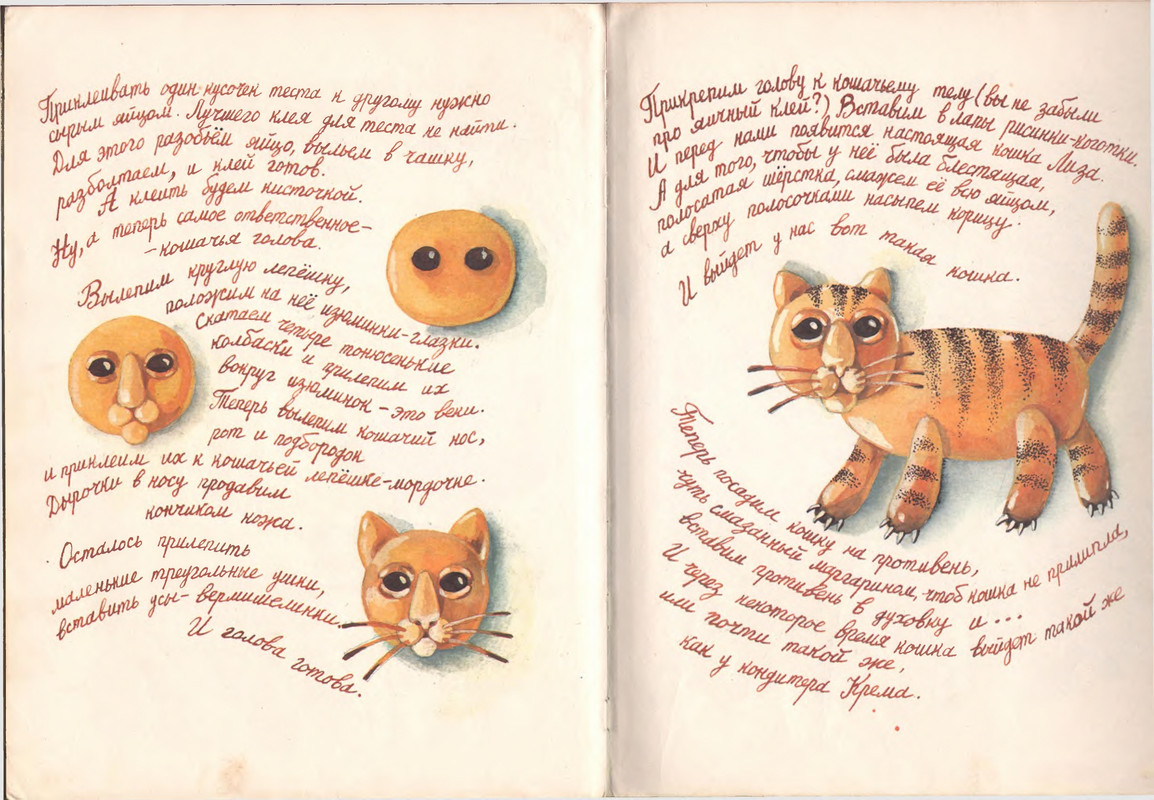 Приклеивать один кусочек теста к другому нужно
сырым яйцом. Лучшего клея для теста не найти.
Для этого разобьём яйцо, выльем в чашку,
разболтаем, и клей готов.
А клеить будем кисточкой.
Ну, а теперь самое ответственное-
-кошачья голова.
Вылепим круглую лепёшку,
положим на неё изюминки-глазки.
Скатаем четыре тонюсенькие
колбаски и прилепим их
вокруг изюминок - это веки.
Теперь вылепим кошачий нос,
рот и подбородок
и приклеим их к кошачьей лепёшке-мордочке.
Дырочки в носу продавим
кончиком ножа.
Осталось прилепить
маленькие треугольные ушки,
вставить усы-вермишелинки.
И голова готова.
Прикрепим голову к кошачьему телу (вы не забыли
про яичный клей?) Вставим в лапы рисинки-коготки.
И перед нами появится настоящая кошка Лиза.
А для того, чтобы у неё была блестящая,
полосатая шёрстка, смажем её всю яйцом,
а сверху полосочками насыпем корицу.
И выйдет у нас вот такая кошка.
Теперь посадим кошку на противень,
чуть смазанный маргарином, чтоб кошка не прилипла,
вставим противень в духовку и...
И через некоторое время кошка выйдет такой же
или почти такой же,
как у кондитера Крема.